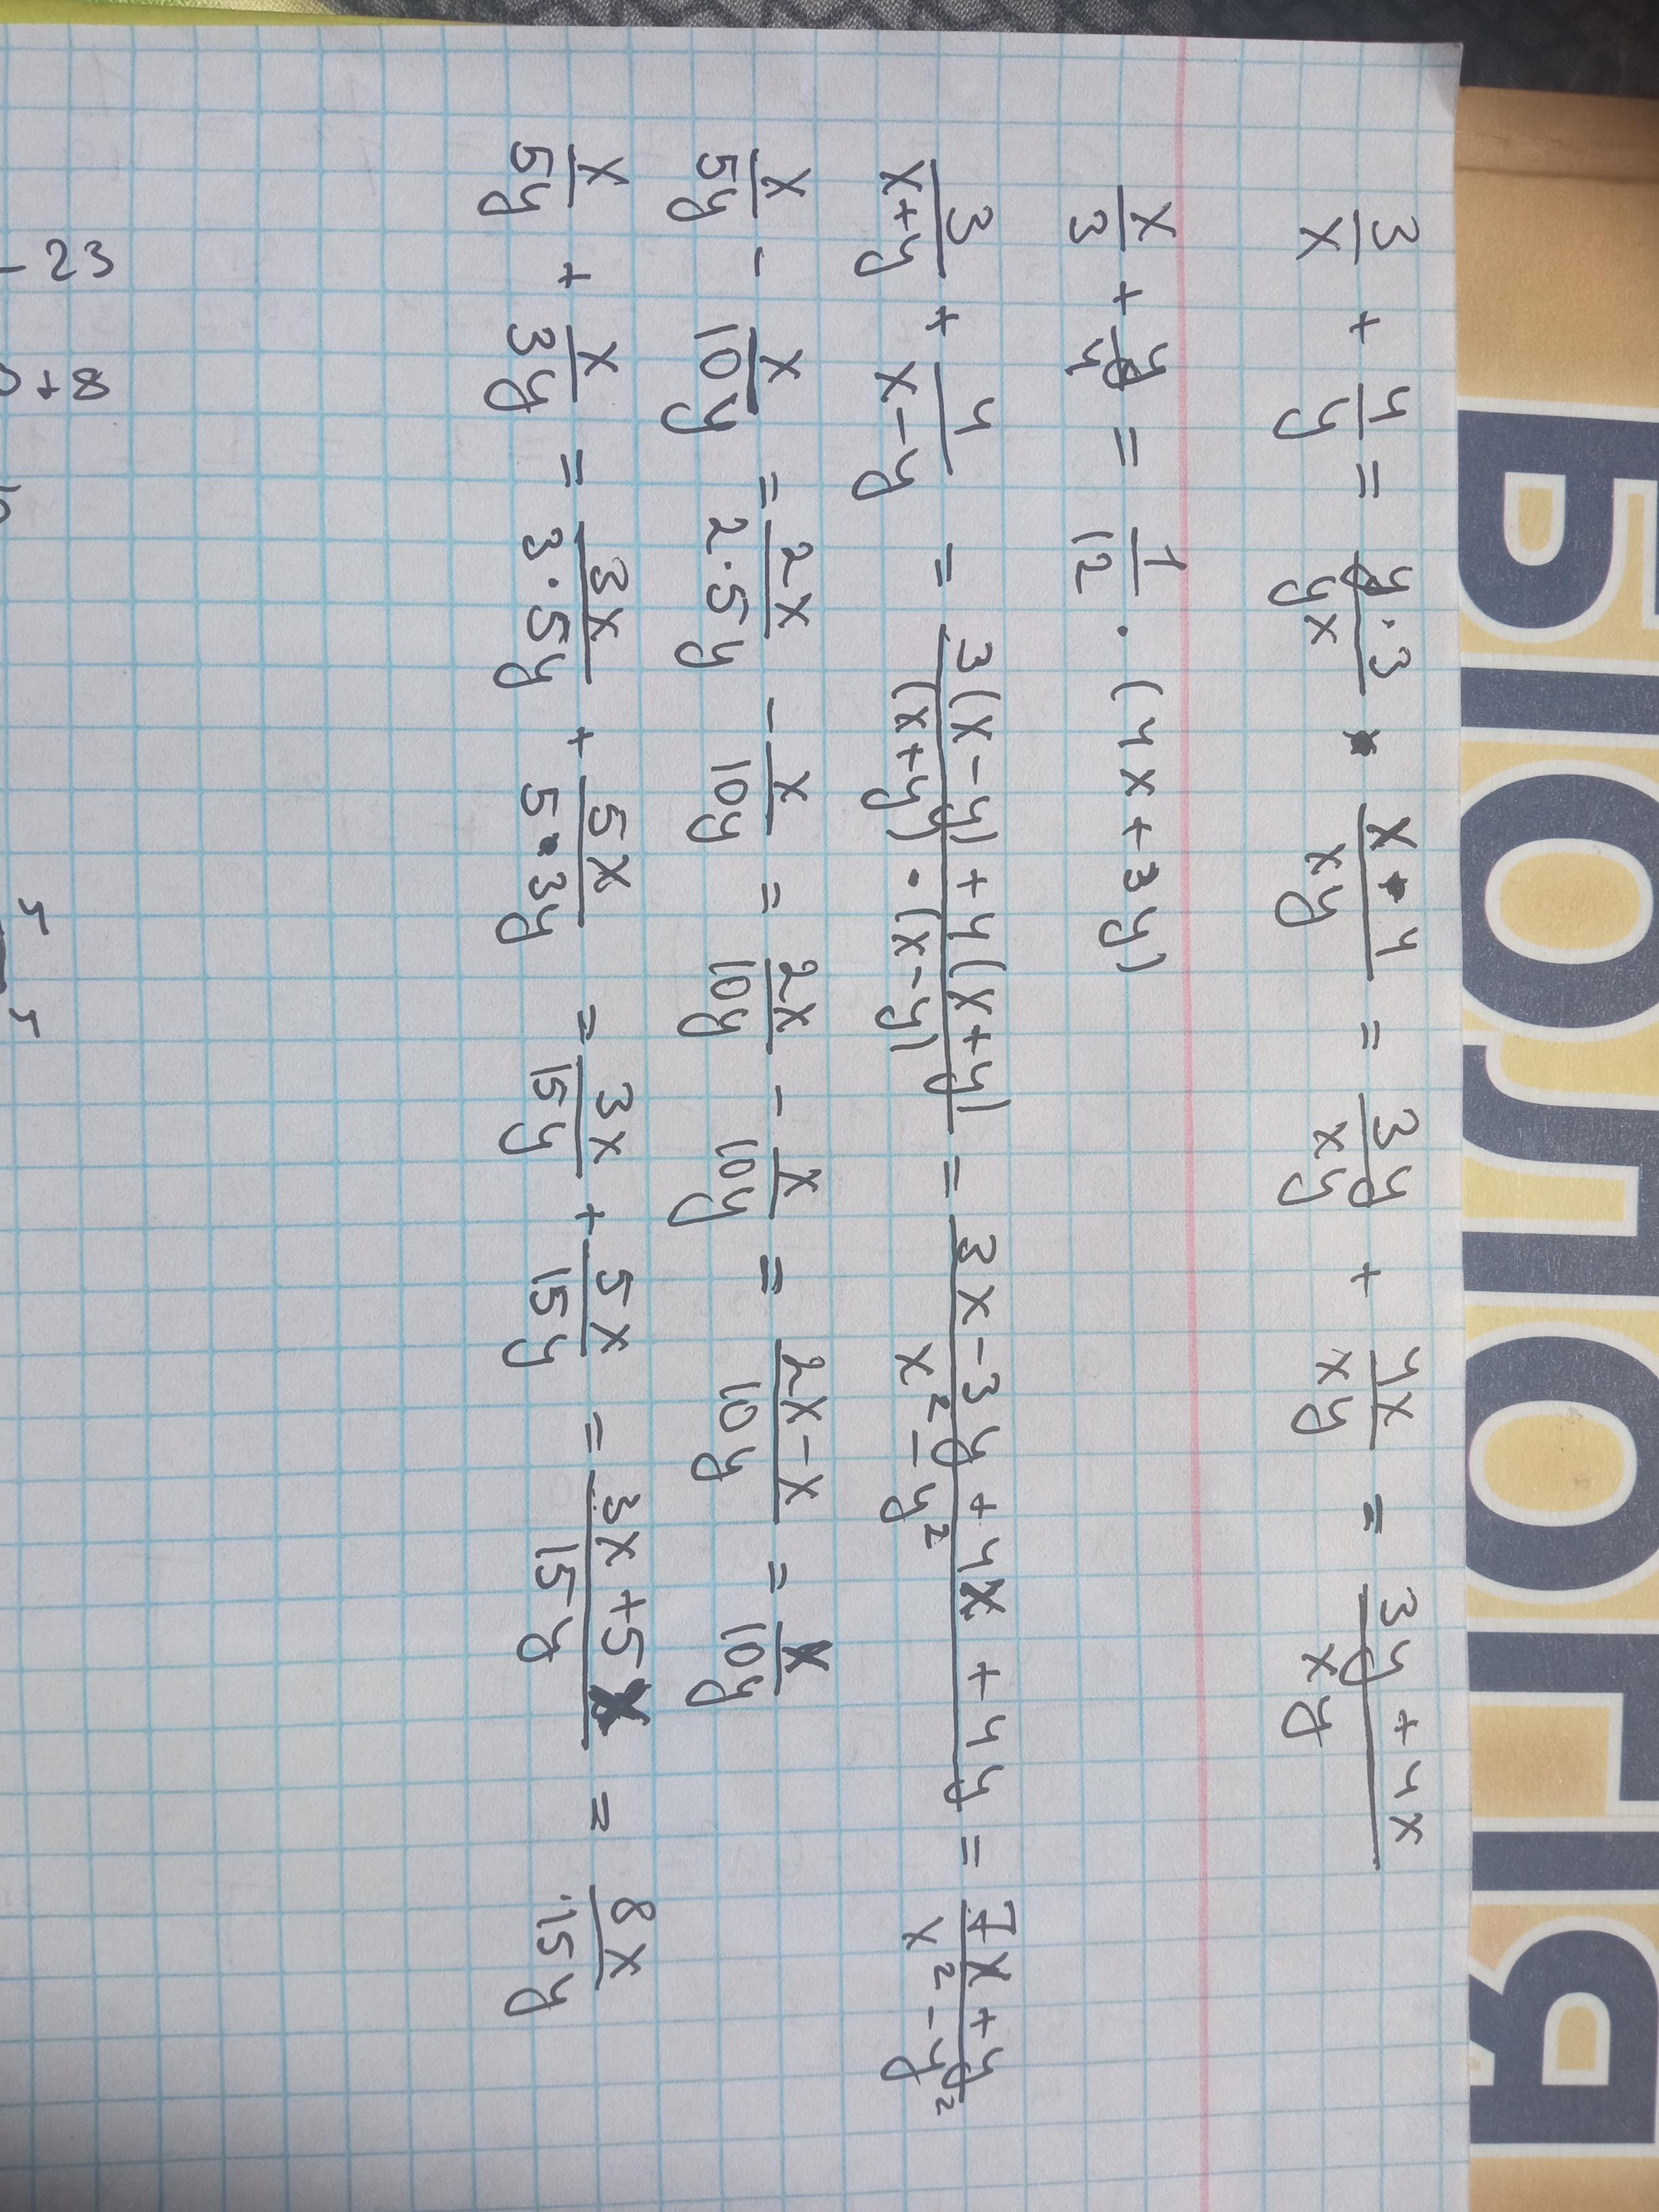 БІОЛОГІЯ
3/x + 4/y = y·3/yx + x·4/xy = 3y/xy + 4x/xy = 3y+4x/xy
x/3 + y/4 = 1/12 · (4x+3y)
3/x+y + 4/x-y = 3(x-y)+4(x+y)/(x+y)·(x-y) = 3x-3y+4x+4y/x²-y² = 7x+y/x²-y²
x/5y - x/10y = 2x/2·5y - x/10y = 2x/10y - x/10y = 2x-x/10y = x/10y
x/5y + x/3y = 3x/3·5y + 5x/5·3y = 3x/15y + 5x/15y = 3x+5x/15y = 8x/15y
- 23
+8